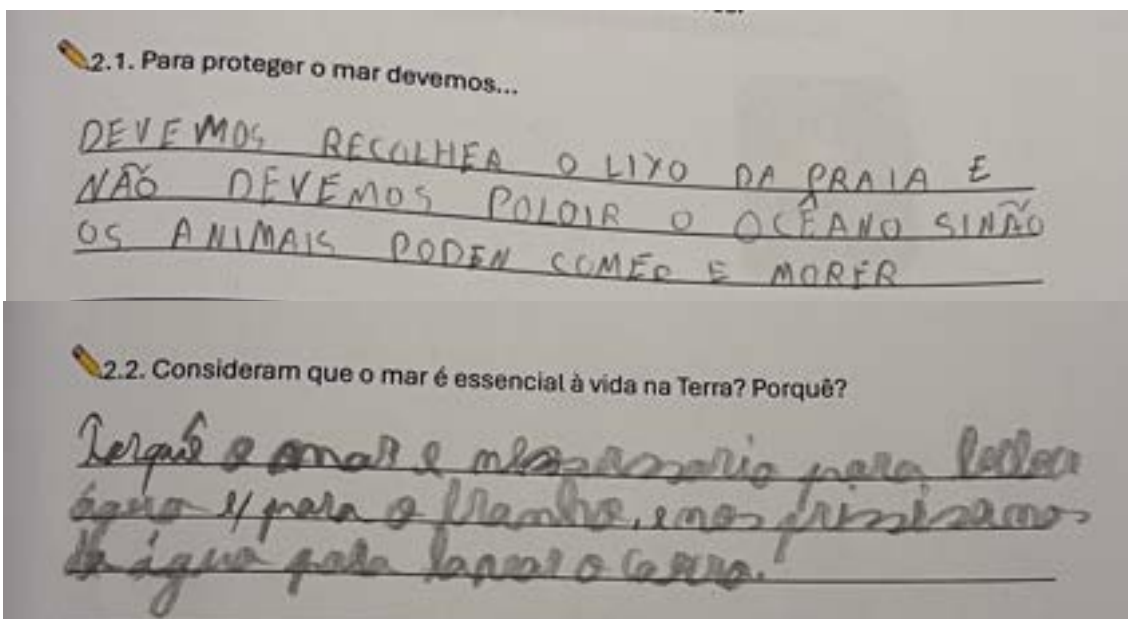 2.1. Para proteger o mar devemos...
DEVEMOS RECOLHER O LIXO DA PRAIA E
NÃO DEVEMOS POLOIR O OCÊANO SINÃO
OS ANIMAIS PODEN COMER E MORER
2.2. Consideram que o mar é essencial à vida na Terra? Porquê?
Porquê o mar e para
água e para o , e nos
água para o carro.